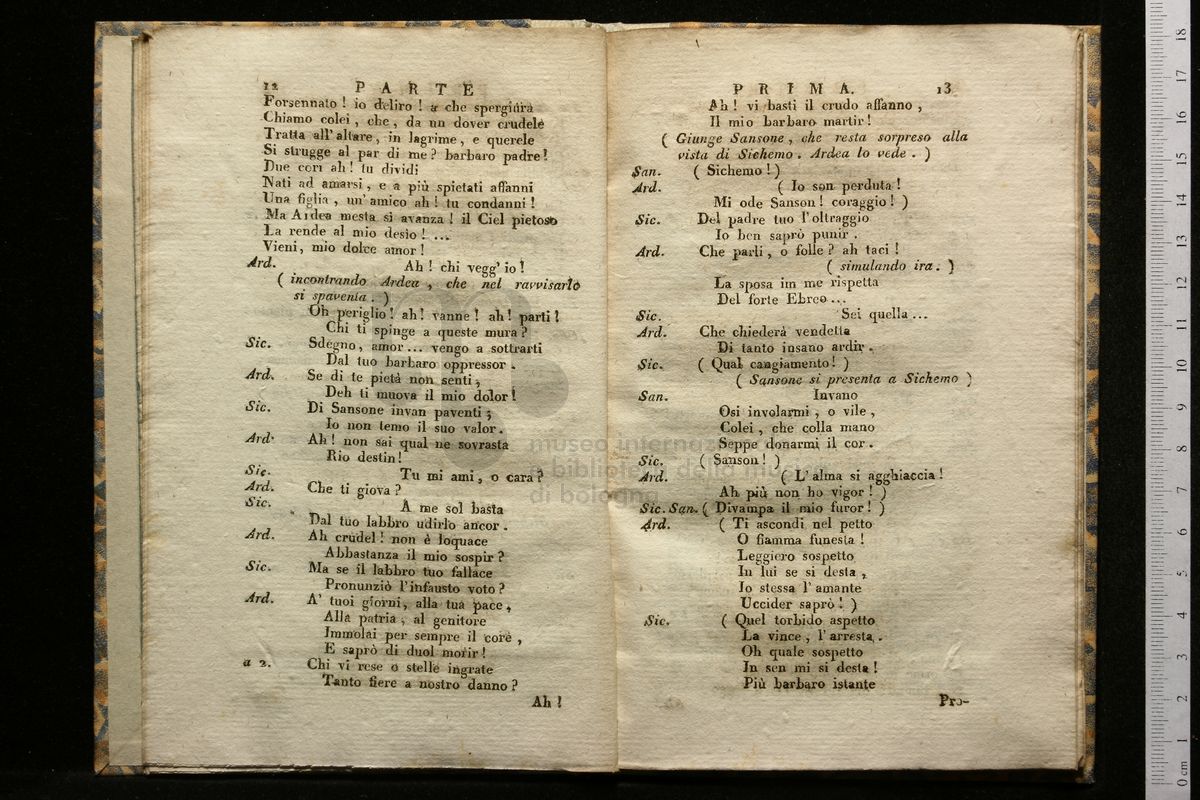 12 PARTE
Forsennato ! io deliro ! a che spergiura
Chiamo colei , che , da un dover crudele
Tratta all' altare , in lagrime , e querele
Si strugge al par di me ? barbaro padre !
Due cori ah ! tu dividi
Nati ad amarsi , e a più spietati affanni
Una figlia , un' amico ah ! tu condanni !
Ma Ardea mesta si avanza ! il Ciel pietoso
La rende al mio desìo ! ...
Vieni, mio dolce amor !
Ard. Ah ! chi vegg' io !
( incontrando Ardea , che nel ravvisarlo
si spaventa . )
Oh periglio ! ah ! vanne ! ah ! parti !
Chi ti spinge a queste mura ?
Sic. Sdegno, amor ... vengo a sottrarti
Dal tuo barbaro oppressor .
Ard. Se di te pietà non senti ,
Deh ti muova il mio dolor !
Sic. Di Sansone invan paventi ;
Io non temo il suo valor .
Ard. Ah ! non sai qual ne sovrasta
Rio destin !
Sic. Tu mi ami , o cara ?
Ard. Che ti giova ?
Sic. A me sol basta
Dal tuo labbro udirlo ancor .
Ard. Ah crudel ! non è loquace
Abbastanza il mio sospir ?
Sic. Ma se il labbro tuo fallace
Pronunziò l'infausto voto ?
Ard. A' tuoi giorni, alla tua pace ,
Alla patria , al genitore
Immolai per sempre il core ,
E saprò di duol morir !
a 2. Chi vi rese o stelle ingrate
Tanto fiere a nostro danno ?
Ah !
PRIMA. 13
Ah ! vi basti il crudo affanno ,
Il mio barbaro martir !
( Giunge Sansone , che resta sorpreso alla
vista di Sichemo . Ardea lo vede . )
San. ( Sichemo ! )
Ard. ( Io son perduta !
Mi ode Sanson ! coraggio ! )
Sic. Del padre tuo l'oltraggio
Io ben saprò punir .
Ard. Che parli , o folle ? ah taci !
( simulando ira . )
La sposa im me rispetta
Del forte Ebreo ...
Sic. Sei quella ...
Ard. Che chiederà vendetta
Di tanto insano ardir .
Sic. ( Qual cangiamento ! )
( Sansone si presenta a Sichemo )
San. Invano
Osi involarmi , o vile ,
Colei , che colla mano
Seppe donarmi il cor .
Sic. ( Sanson ! )
Ard. ( L'alma si agghiaccia !
Ah più non ho vigor ! )
Sic. San. ( Divampa il mio furor ! )
Ard. ( Ti ascondi nel petto
O fiamma funesta !
Leggiero sospetto
In lui se si desta ,
Io stessa l'amante
Uccider saprò ! )
Sic. ( Quel torbido aspetto
La vince , l'arresta .
Oh quale sospetto
In sen mi si desta !
Più barbaro istante
Pro-
museo internaz
e biblioteca della musica
di bologna
0 cm 1 2 3 4 5 6 7 8 9 10 11 12 13 14 15 16 17 18